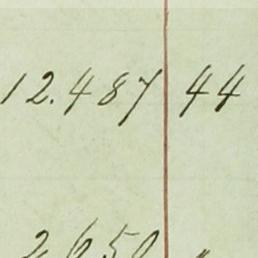 12.487 44
2.650 "